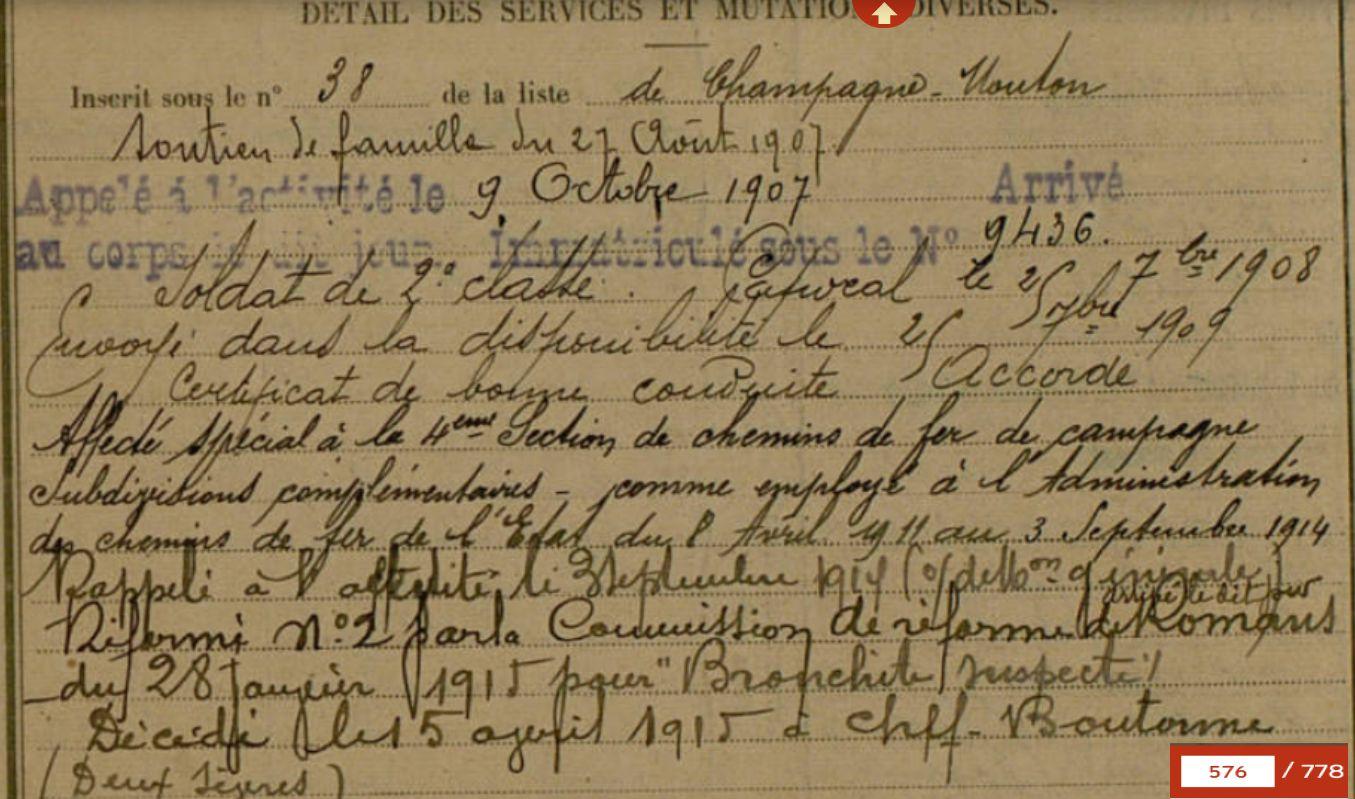 DÉTAIL DES SERVICES ET MUTATIONS DIVERSES.
Inscrit sous le n° 38 de la liste de Champagne-Mouton
Soutien de famille du 27 Août 1907
Appelé à l'activité le 9 Octobre 1907 Arrivé
au corps le dit jour. Immatriculé sous le N° 9436.
Soldat de 2e classe. Caporal le 25 7bre 1908
Envoyé dans la disponibilité le 25 7bre 1909
Certificat de bonne conduite Accordé
Affecté spécial à la 4eme Section de chemins de fer de campagne
Subdivisions complémentaires - comme employé à l'Administration
des chemins de fer de l'Etat du 1er Avril 1911 au 3 Septembre 1914
Rappelé à l'activité le 3 Septembre 1914 (o/ de Mb.on générale)
arrivé le dit jour
Réformé N°2 par la Commission de réforme de Romans
du 28 janvier 1915 pour "Bronchite suspecte"
Décédé le 15 avril 1915 à Chef-Boutonne
(Deux Sèvres)
576 / 778